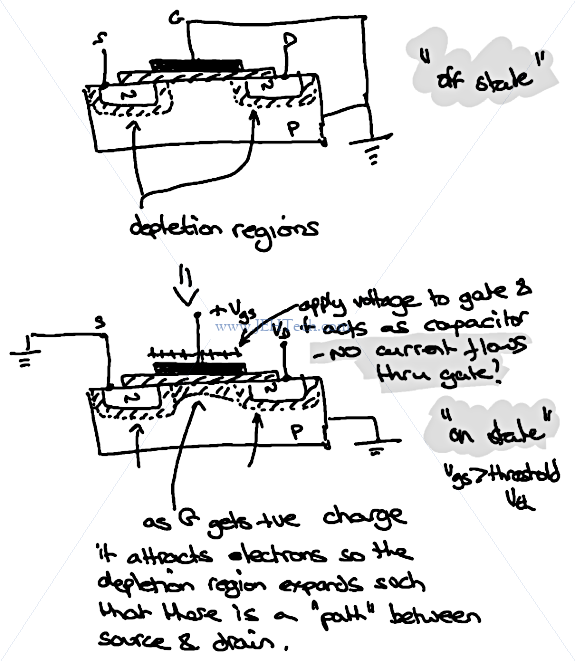 G
S
D
"off state"
N
N
P
depletion regions
+Vgs
apply voltage to gate &
it acts as capacitor
- NO current flows
thru gate!
www.
Tech.com
S
VD
N
N
P
"on state"
Vgs > threshold
Vth
as G gets +ve charge
it attracts electrons so the
depletion region expands such
that there is a "path" between
source & drain.